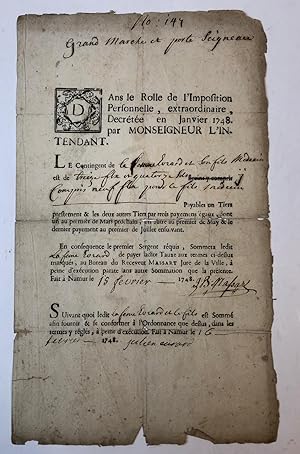 No: 144
Grand Marche et porte Seigneau
DAns le Rolle de l'Imposition
Personnelle, extraordinaire,
Decrétée en Janvier 1748.
par MONSEIGNEUR L'IN-
TENDANT.
LE Contingent de la et son fils Medecin
est de
Compris neuf flor pour le fils medecin
Payables un Tiers
prestement & les deux autres Tiers par trois payemens égaux, dont
un au premier de Mars prochain, un autre au premier de May & le
dernier payement au premier de Juillet ensuivant.
En consequence le premier Sergent réquis, Sommera ledit
de payer ladite Taxe aux termes ci-dessus
marqués, au Bureau du Receveur MASSART Juré de la Ville, à
peine d'exécution parate sans autre Sommation que la présente.
Fait à Namur le 15 fevrier 1748.
SUivant quoi ledit et le fils est Sommé
afin fournir & se conformer à l'Ordonnance que dessus, dans les
termes y réglés, à peine d'exécution. Fait à Namur le 16
fevrier 1748.